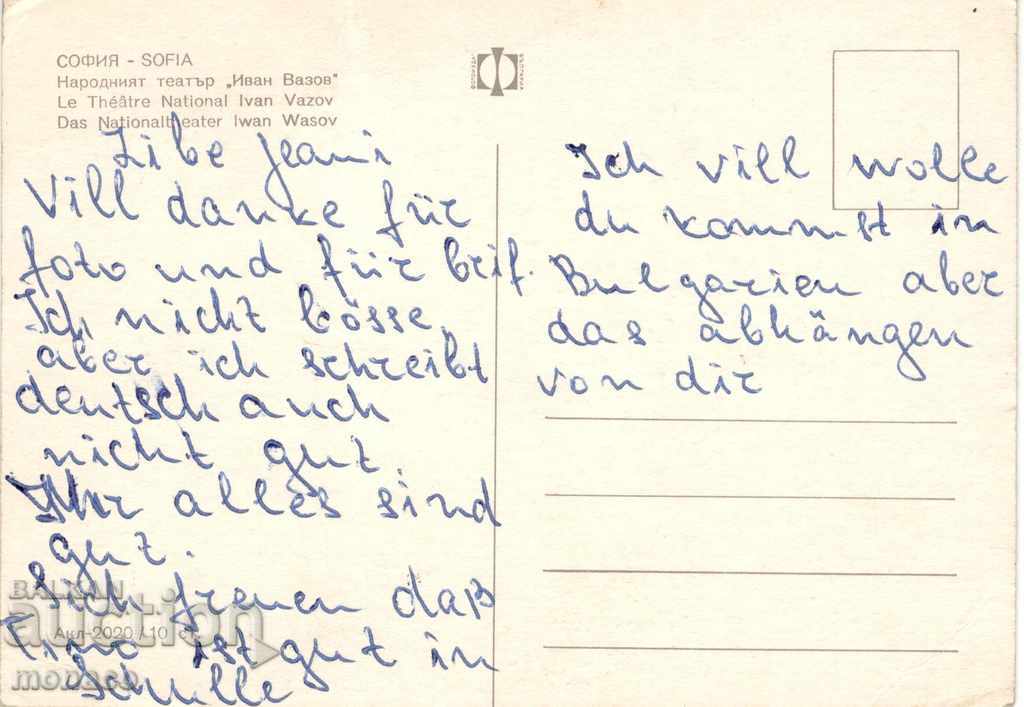 СОФИЯ - SOFIA
Народният театър „Иван Вазов"
Le Théâtre National Ivan Vazov
Das Nationaltheater Iwan Wasov
Libe Jeani
Vill danke für
foto und für brif.
Ich nicht bösse,
aber ich schreibt
deutsch auch
nicht gut.
Ihr alles sind
gut.
Sich freuen daß
Timo ist gut in
Schulle
Ich vill wolle
du kommst in
Bulgarien aber
das abhängen
von dir
BALKAN
auction
Акл-2020 / 10 ст
monaco